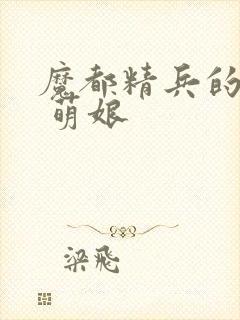 魔都精兵的
萌娘
梁飛